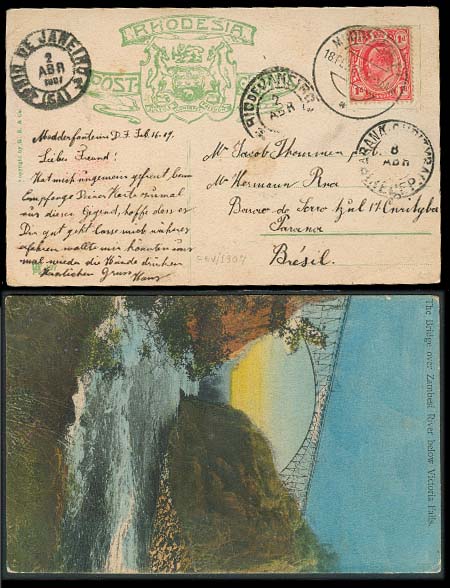 RHODESIA
POST
RIO DE JANEIRO
2
ABR
1907
(5A)
RIO DE JANEIRO
2
ABR
1d 1d
8
ABR
Copyright by
Modderfontein D. F. Feb. 16.07.
Lieber Freund!
Hat mich ungemein gefreut beim
Empfange Deiner Karte zumal
aus dieser Gegend, hoffe dass es
Dir gut geht lasse mich näheres
erfahren wollte wir könnten uns
mal wieder die Hände drücken
Herzlichen Gruss Hans
Mr Jacob
Mr Hermann
Barro do Serro Azul 17 Curityba
Parana
Brésil.
FEV/1907
The Bridge over Zambesi River below Victoria Falls.